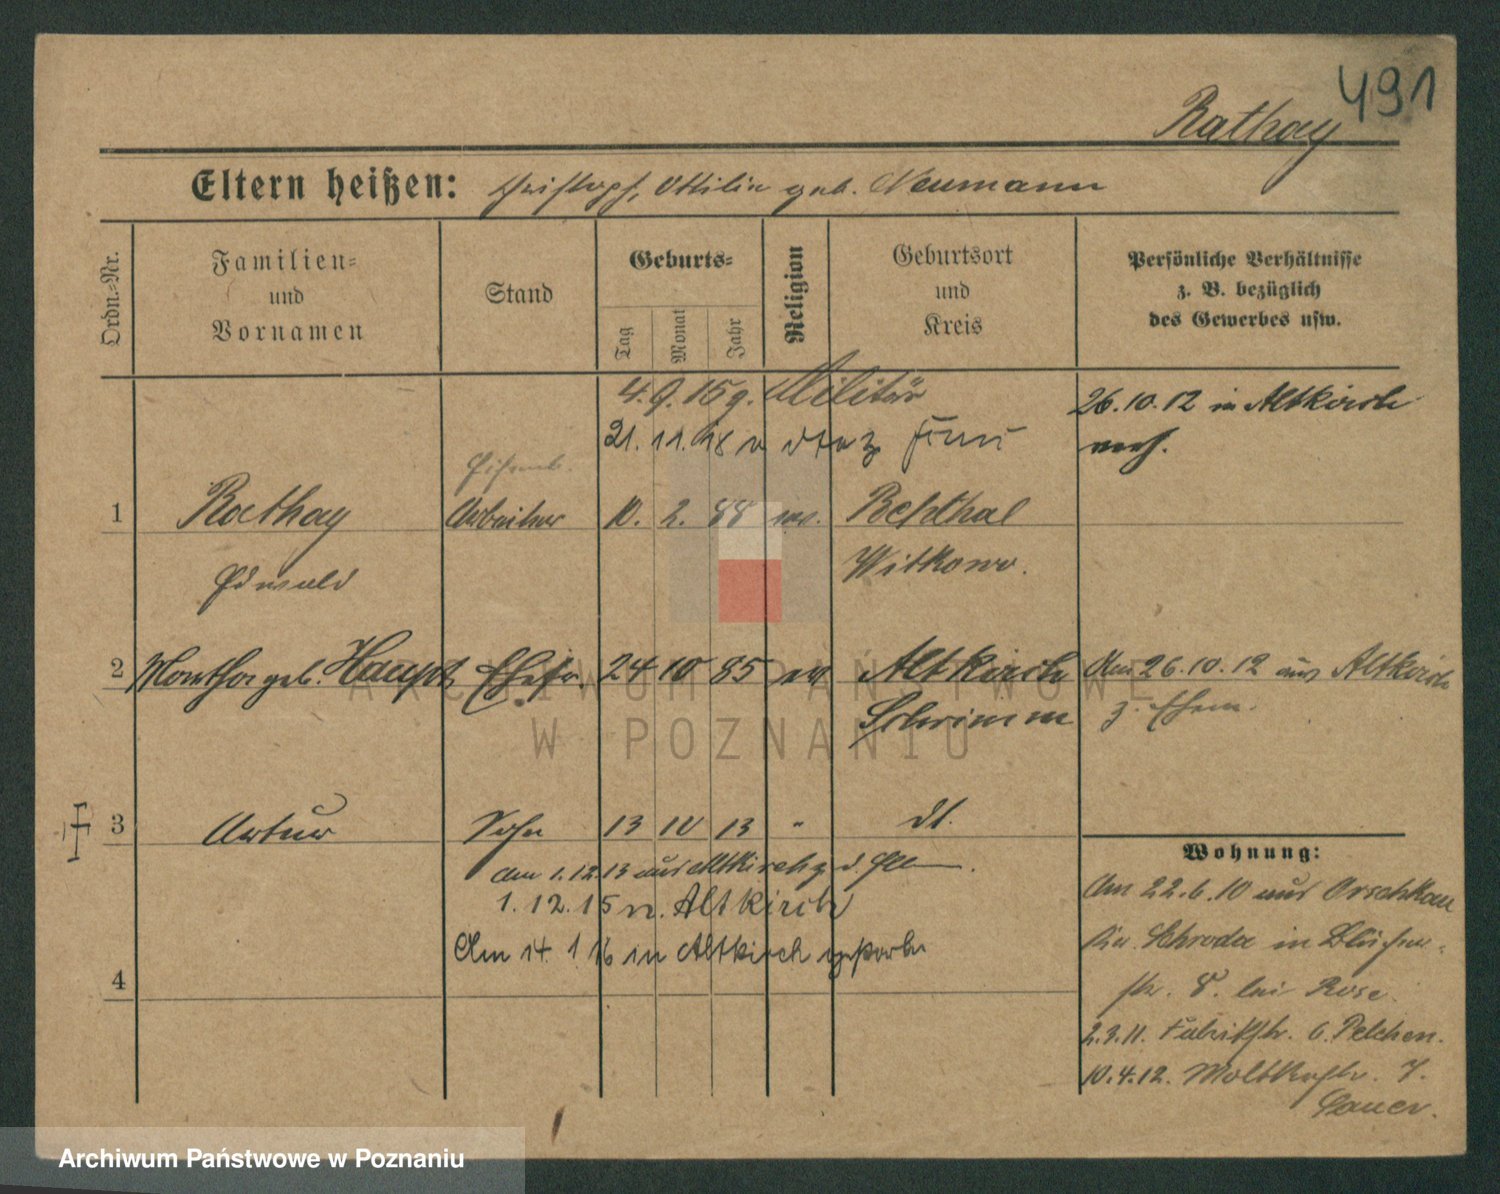 491
Rathay
Eltern heißen: Christoph, Ottilie geb. Neumann
Ordn.-Nr.
Familien-
und
Vornamen
Stand
Geburts-
Tag
Monat
Jahr
Religion
Geburtsort
und
Kreis
Persönliche Verhältnisse
z. B. bezüglich
des Gewerbes usw.
4.9.15 g. Militär
21. 11. 18 v
26.10.12 in Altkirch
verh.
1 Rathay Arbeiter 10. 2. 88 ev. Bethal
Ewald Witkowo.
2 Martha geb. Haupt Ehefr. 24 10 85 ev Altkirch Am 26.10.12 aus Altkirch
Schrimm z. Ehem.
3 Artur Sohn 13 10 13 " dt.
am 1.12.13 aus Altkirch z. d.
1.12.15 n. Altkirch
Am 14. 1 16 in Altkirch gestorben
4
Wohnung:
Am 22.6.10 aus Orschkau
Schroda in
str. 8. bei Rose.
2.3.11. Fabrikstr. 6. Pelchen.
10.4.12. Moltkestr. 7.
Sauer.
ARCHIWUM PAŃSTWOWE
W POZNANIU
Archiwum Państwowe w Poznaniu